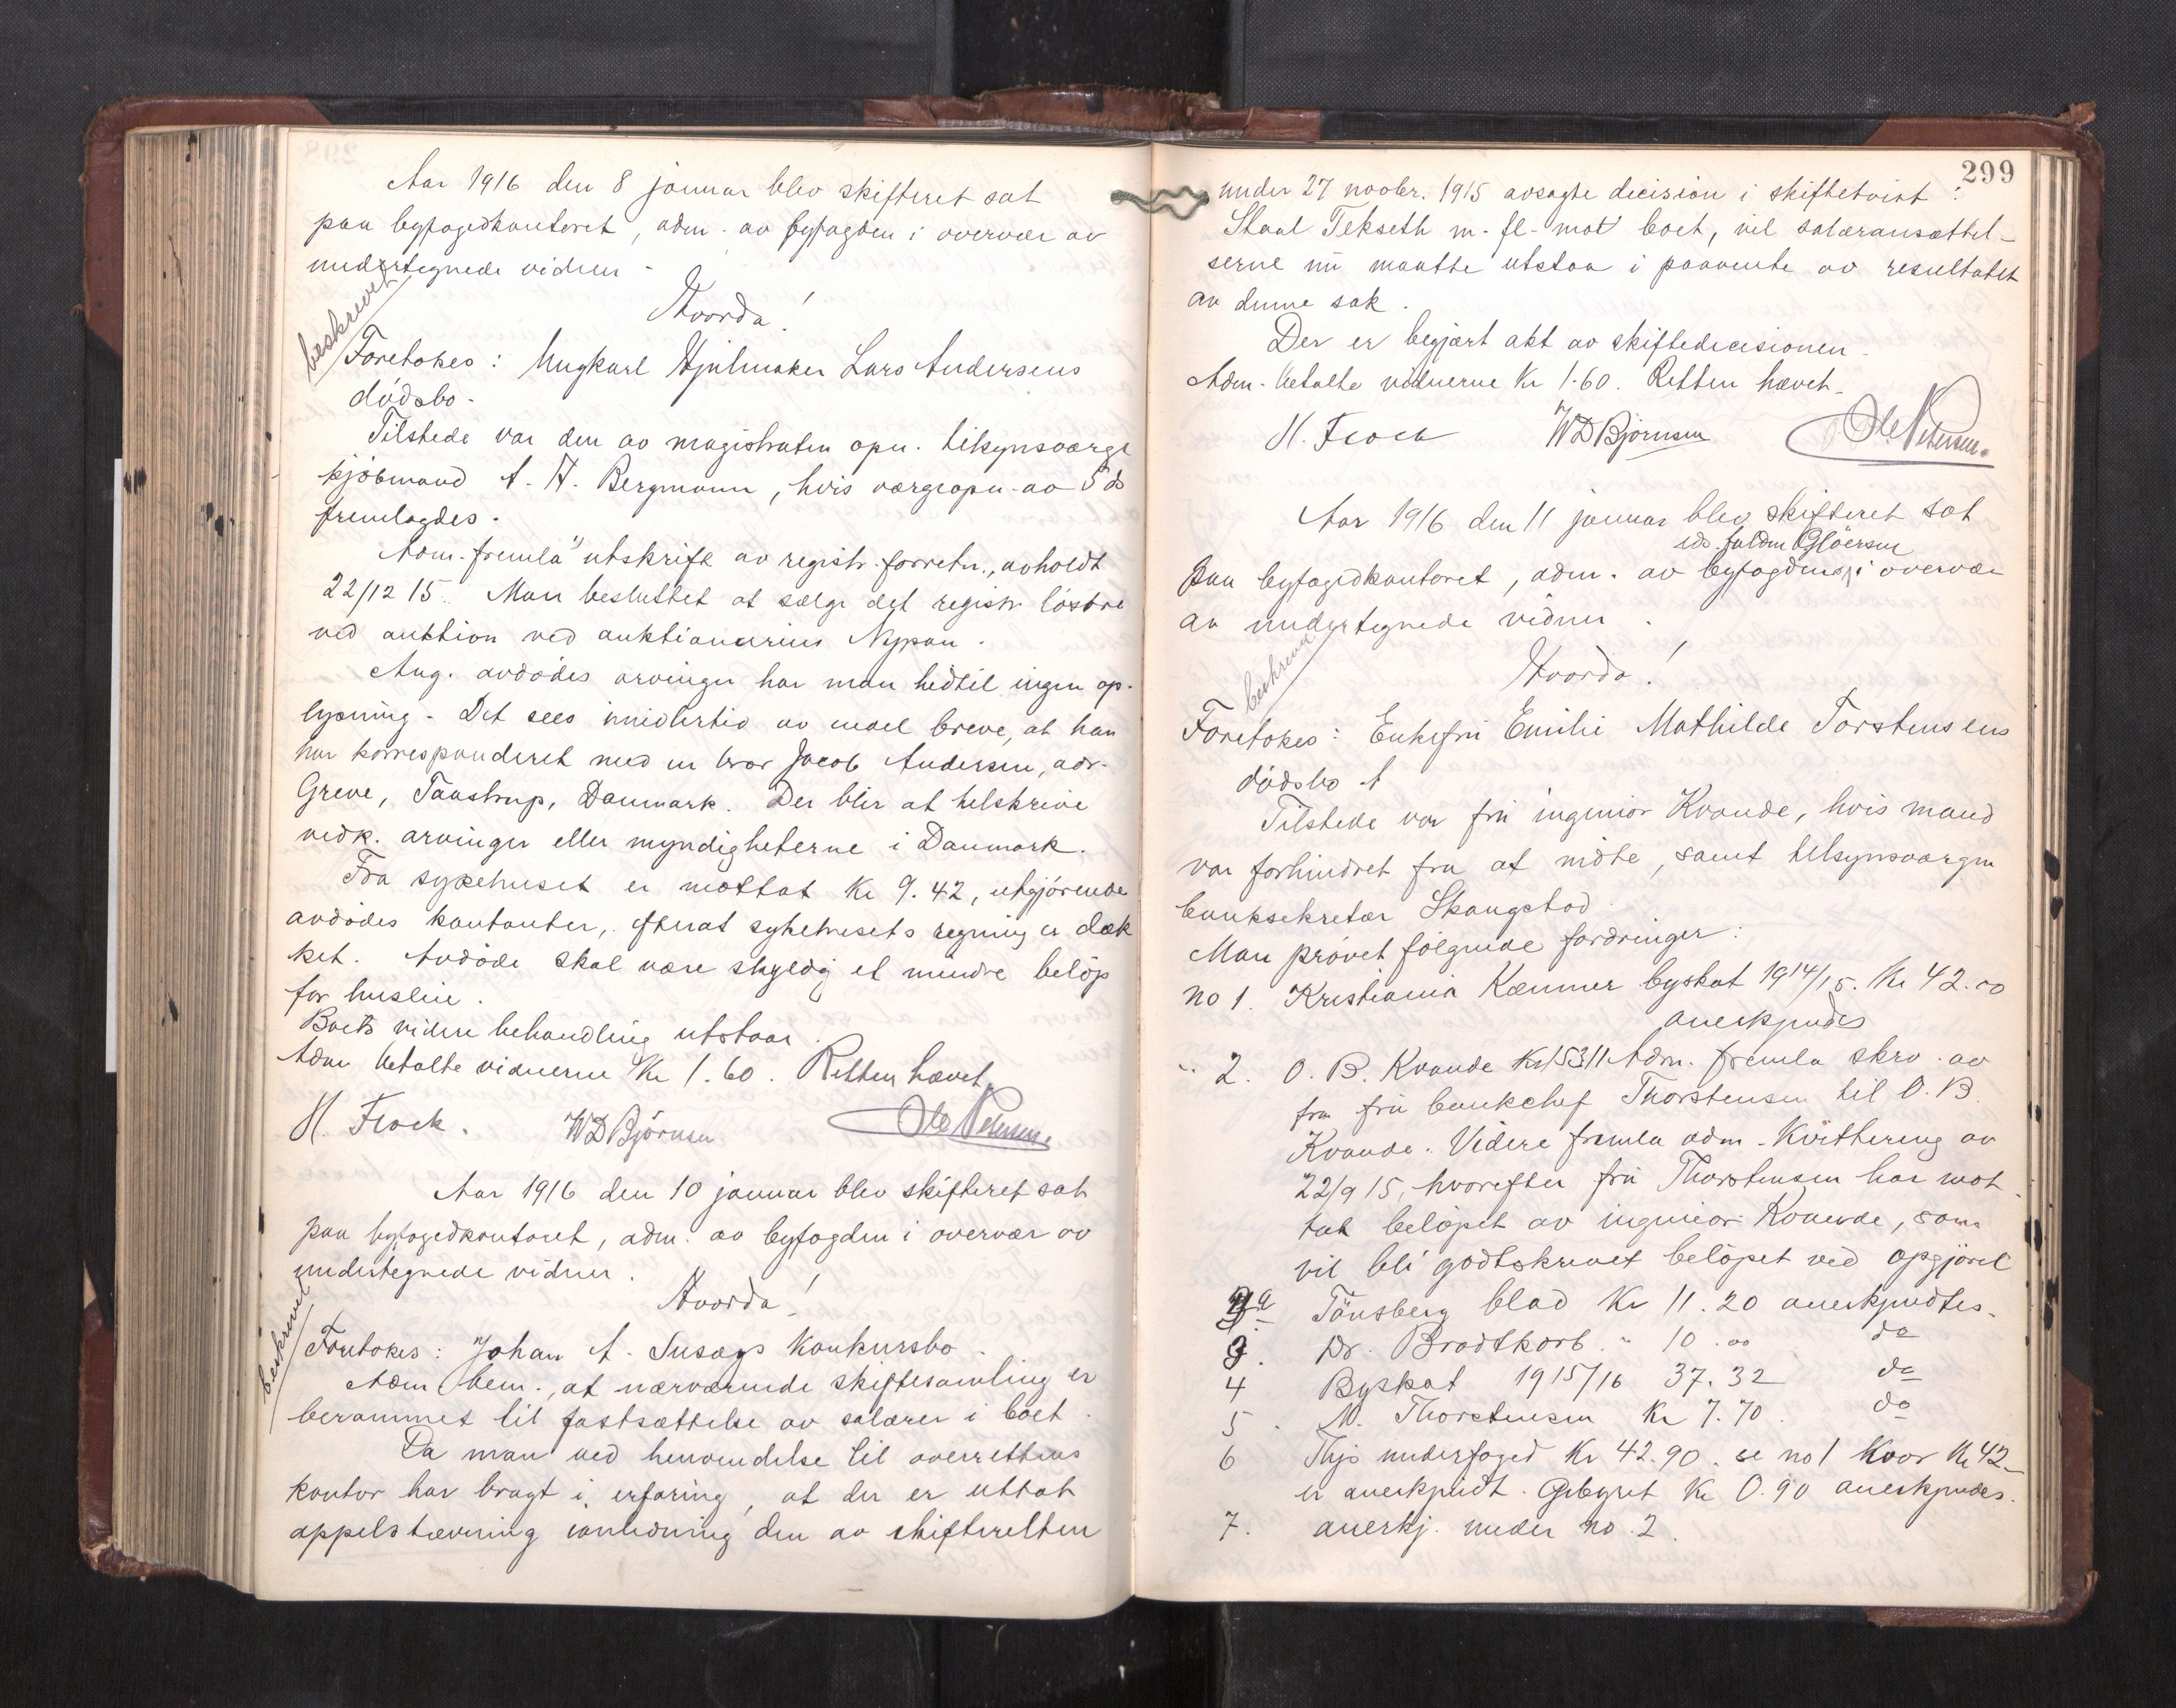 Aar 1916 den 8 januar blev skifteret sat
paa byfogedkontoret, adm. av byfogden i overvær av
undertegnede vidner.
Hvorda!
beskrevet
Foretokes: Ungkarl Hjulmaker Lars Andersens
dödsbo.
Tilstede var den av magistraten opn. tilsynsværge
kjöbmand A. H. Bergmann, hvis værgeopn. av 5 ds
fremlagdes.
Adm. fremla utskrift av registr. forretn., avholdt
22/12 15. Man besluttet at sælge det registr. lösöre
ved auktion ved auktionarius Nypan.
Ang. avdödes arvinger har man hidtil ingen op-
lysning. Det sees imidlertid av endel breve, at han
har korresponderet med en bror Jacob Andersen, adr.
Greve, Taastrup, Danmark. Der blir at tilskrive
vedk. arvinger eller myndigheterne i Danmark.
Fra sykehuset er mottat Kr 9.42, utgjörende
avdödes kontanter, efterat sykehusets regning er dæk
ket. Avdöde skal være skyldig et mindre belöp
for husleie.
Boets videre behandling utstaar.
Adm betalte vidnerne Kr 1.60. Retten hævet.
H. Frock. WD Björnsen Ole Petersen
Aar 1916 den 10 januar blev skifteret sat
paa byfogedkontoret, adm. av byfogden i overvær av
undertegnede vidner.
Hvorda!
beskrevet
Foretokes: Johan A. Susægs Konkursbo.
Adm. bem., at nærværende skiftesamling er
berammet til fastsættelse av salærer i boet.
Da man ved henvendelse til overrettens
kontor har bragt i erfaring, at der er uttat
appelstævning anledning den av skifteretten
299
under 27 novbr. 1915 avsagte decision i skiftetvist:
Staal Tekseth m. fl. mot boet, vil salæransættel-
serne nu maatte utstaa i paavente av resultatet
av denne sak.
Der er begjært akt av skiftedecisionen.
Adm. betalte vidnerne Kr 1.60. Retten hævet.
H. Frock WD Björnsen Ole Petersen.
Aar 1916 den 11 januar blev skifteret sat
ved fuldm Glöersen
paa byfogedkontoret, adm. av byfogden i overvær
av undertegnede vidner.
Hvorda!
beskrevet
Foretokes: Enkefru Emilie Mathilde Torstensens
dödsbo
Tilstede var fru ingeniör Kvande, hvis mand
var forhindret fra at möte, samt tilsynsværgen
banksekretær Skaugstad.
Man prövet fölgende fordringer:
No 1. Kristiania Kæmner byskat 1914/15. Kr 42.00
anerkjendes
" 2. O. B. Kvande Kr 15311 Adm. fremla skrv. av
fra fru bankchef Thorstensen til O. B.
Kvande. Videre fremla adm. Kvittering av
22/9 15, hvorefter fru Thorstensen har mot
tat belöpet av ingeniör Kvande, som
vil bli godtskrevet belöpet ved opgjörel
2a Tönsberg blad Kr 11.20 anerkjendtes.
3. Dr. Brodtkorb " 10.00 do
4 Byskat 1915/16 37.32 do
5. M. Thorstensen Kr 7.70. do
6 Thjs underfoged Kr 42.90. se no 1 hvor Kr 42.-
er anerkjendt. Gebyret Kr 0.90 anerkjendes.
7. anerkj. under no. 2.